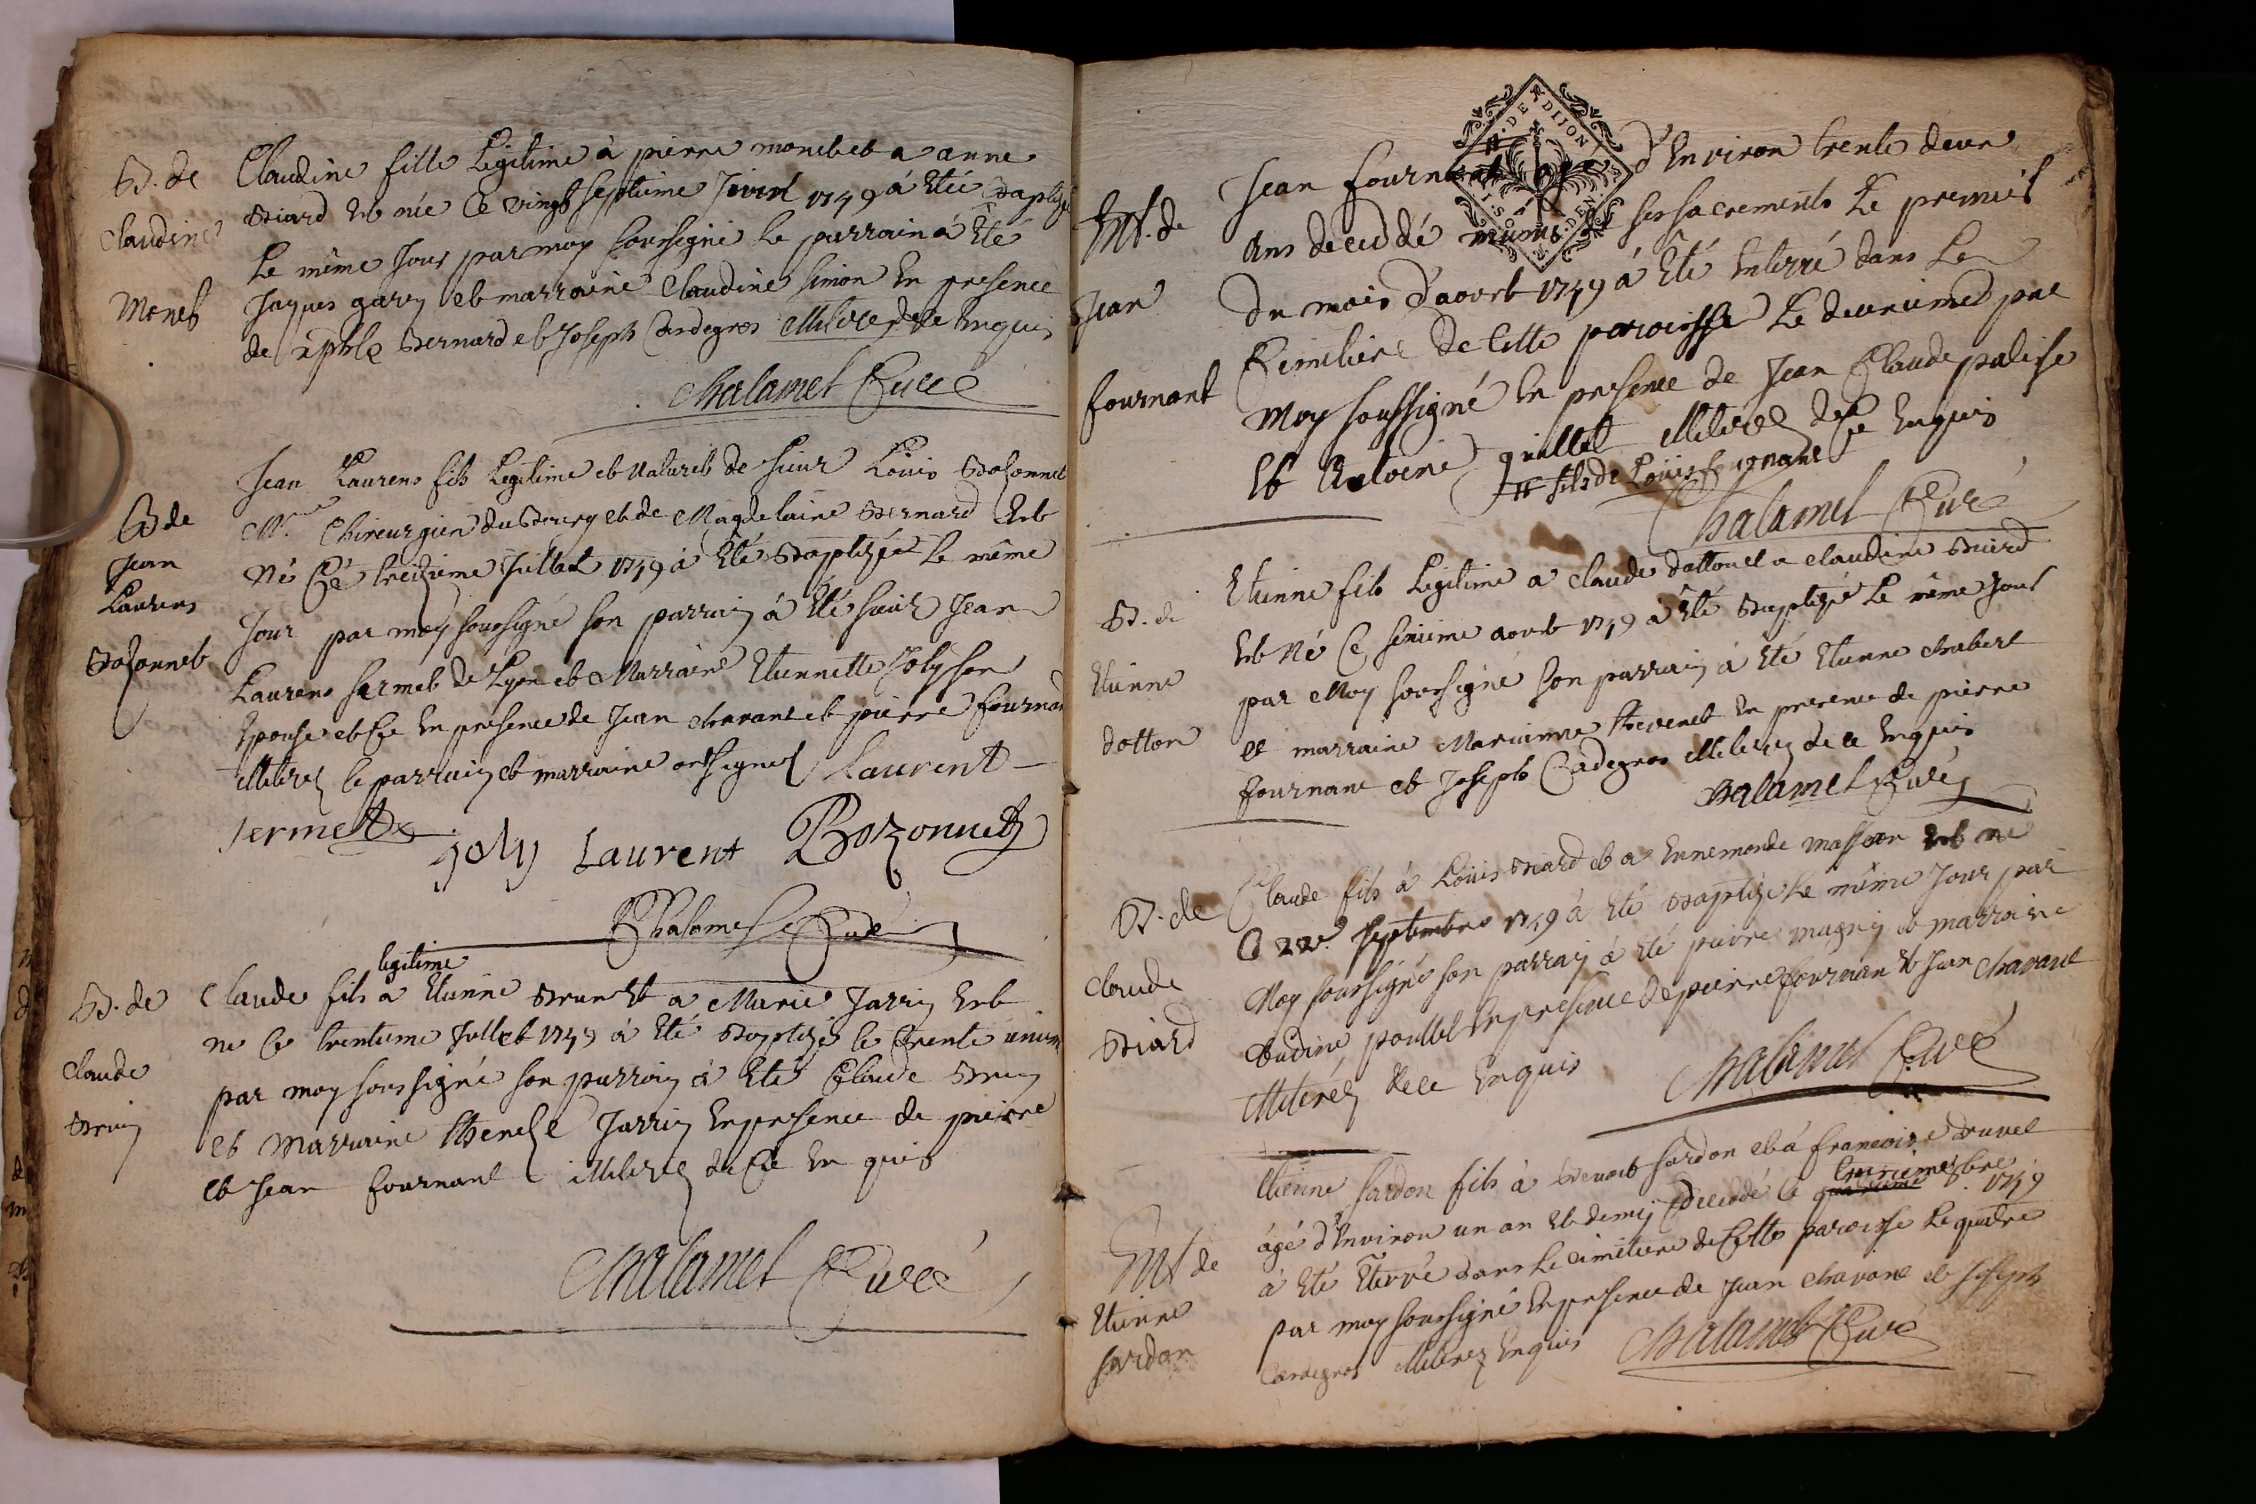 B. de
Claudine
Monet
Claudine fille Legitime à pierre monet et a anne
Biard est née ce vingt septieme Juin 1749 á Etée Baptizée
Le même Jour par moy soussigné Le parrain á Eté
Jaques garin et marraine Claudine Simon En presence
de Bernard et Joseph Cardegros Illiterez de ce Enquis
Chalamel Curé
B de
Jean
Laurens
Bosonnet
Jean Laurens fils Legitime et Naturel de sieur Louis Bosonnet
Mre. Chireurgien du Bourg et de Magdelaine Bernard Est
Né Ce treizieme Juillet 1749 á Eté Baptizée Le même
Jour par moy soussigné son parrain á Eté sieur Jean
Laurens sermet de Lyon et Marraine Etiennette Joly son
Epouse et Ce En presence de Jean chavant et pierre fournan
Illiterez le parrain et marraine ont signez Laurent
sermet
joly Laurent Bozonnet
Chalamel Curé
B. de
Claude
Brun
legitime
Claude fils a Etienne Brun et a Marie Jarrin Est
ne Ce trentieme Jullet 1749 á Eté Baptizé le trente unieme
par moy soussigné son parrain á Eté Claude Brun
et Marraine Jarrin En presence de pierre
et Jean fournant Illiterez de Ce En quis
Chalamel Curé
DE DIJON
Ent. de
Jean
fournant
Jean fournant agé d'Environ trente deux
Ans decedé munis de ses sacrements Le premier
du mois d'aoust 1749 á Eté Enterré dans Le
Cimetiere de Cette paroisse Le deuxieme par
Moy soussigné En presence de Jean Claude palisse
Et Antoine quillet Illiterez de Ce Enquis
# fils de Louis fournant
Chalamel Curé
B. de
Etienne
dotton
Etienne fils Legitime a Claude dotton et a Claudine Biard
Est Né Ce sixieme aoust 1749 á Eté Baptizé Le même Jour
par Moy soussigné son parrain á Eté Etienne chabert
et marraine Marianne thevenet En presence de pierre
fournant et Joseph Cadegros Illiterez de ce Enquis
Chalamel Curé
B. de
Claude
Biard
Claude fils à Louis Biard et a Ennemonde masson Est né
Ce 22e. septembre 1749 á Eté Baptizé Le même Jour par
Moy soussigné son parrain á Eté pierre magnin et marraine
Claudine poullet En presence de pierre fournant & Jean chavant
Illiterez de ce Enquis
Chalamel Curé
Ent de
Etienne
sardon
Etienne sardon fils à benoit sardon et á francoise druvet
âgé d'Environ un an et demij decedé le 1749
á Eté Eterré dans Le cimetiere de Cette paroisse Le quatre
par moy soussigné En presence de Jean chavant et Joseph
Cardegros Illiterez Enquis Chalamel Curé